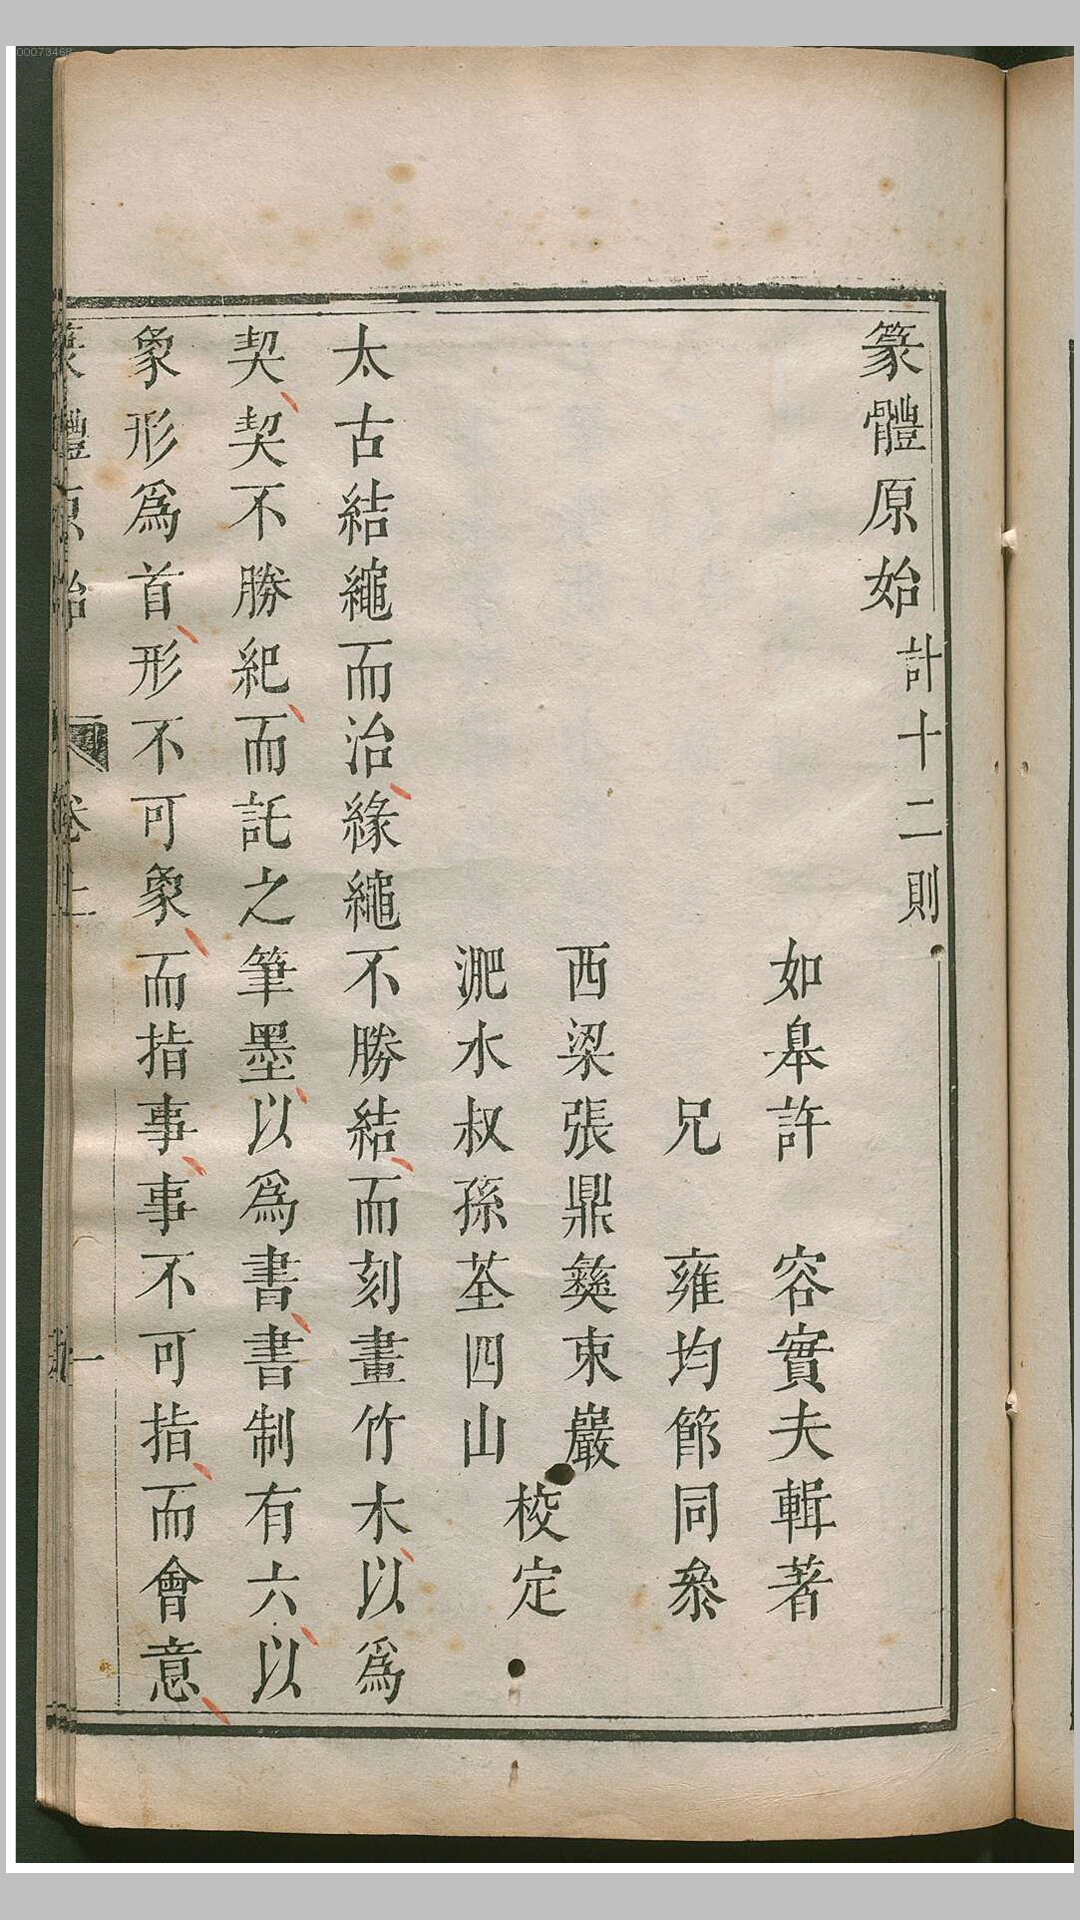 篆體原始計十二則
如皋許　容實夫輯著
兄　雍均節同叅
西梁張鼎彝東巖
淝水叔孫荃四山
校定
太古結繩而治緣繩不勝結而刻畫竹木以爲
契契不勝紀而託之筆墨以爲書書制有六以
象形爲首形不可象而指事事不可指而會意
篆體原始
卷上
一
00073468